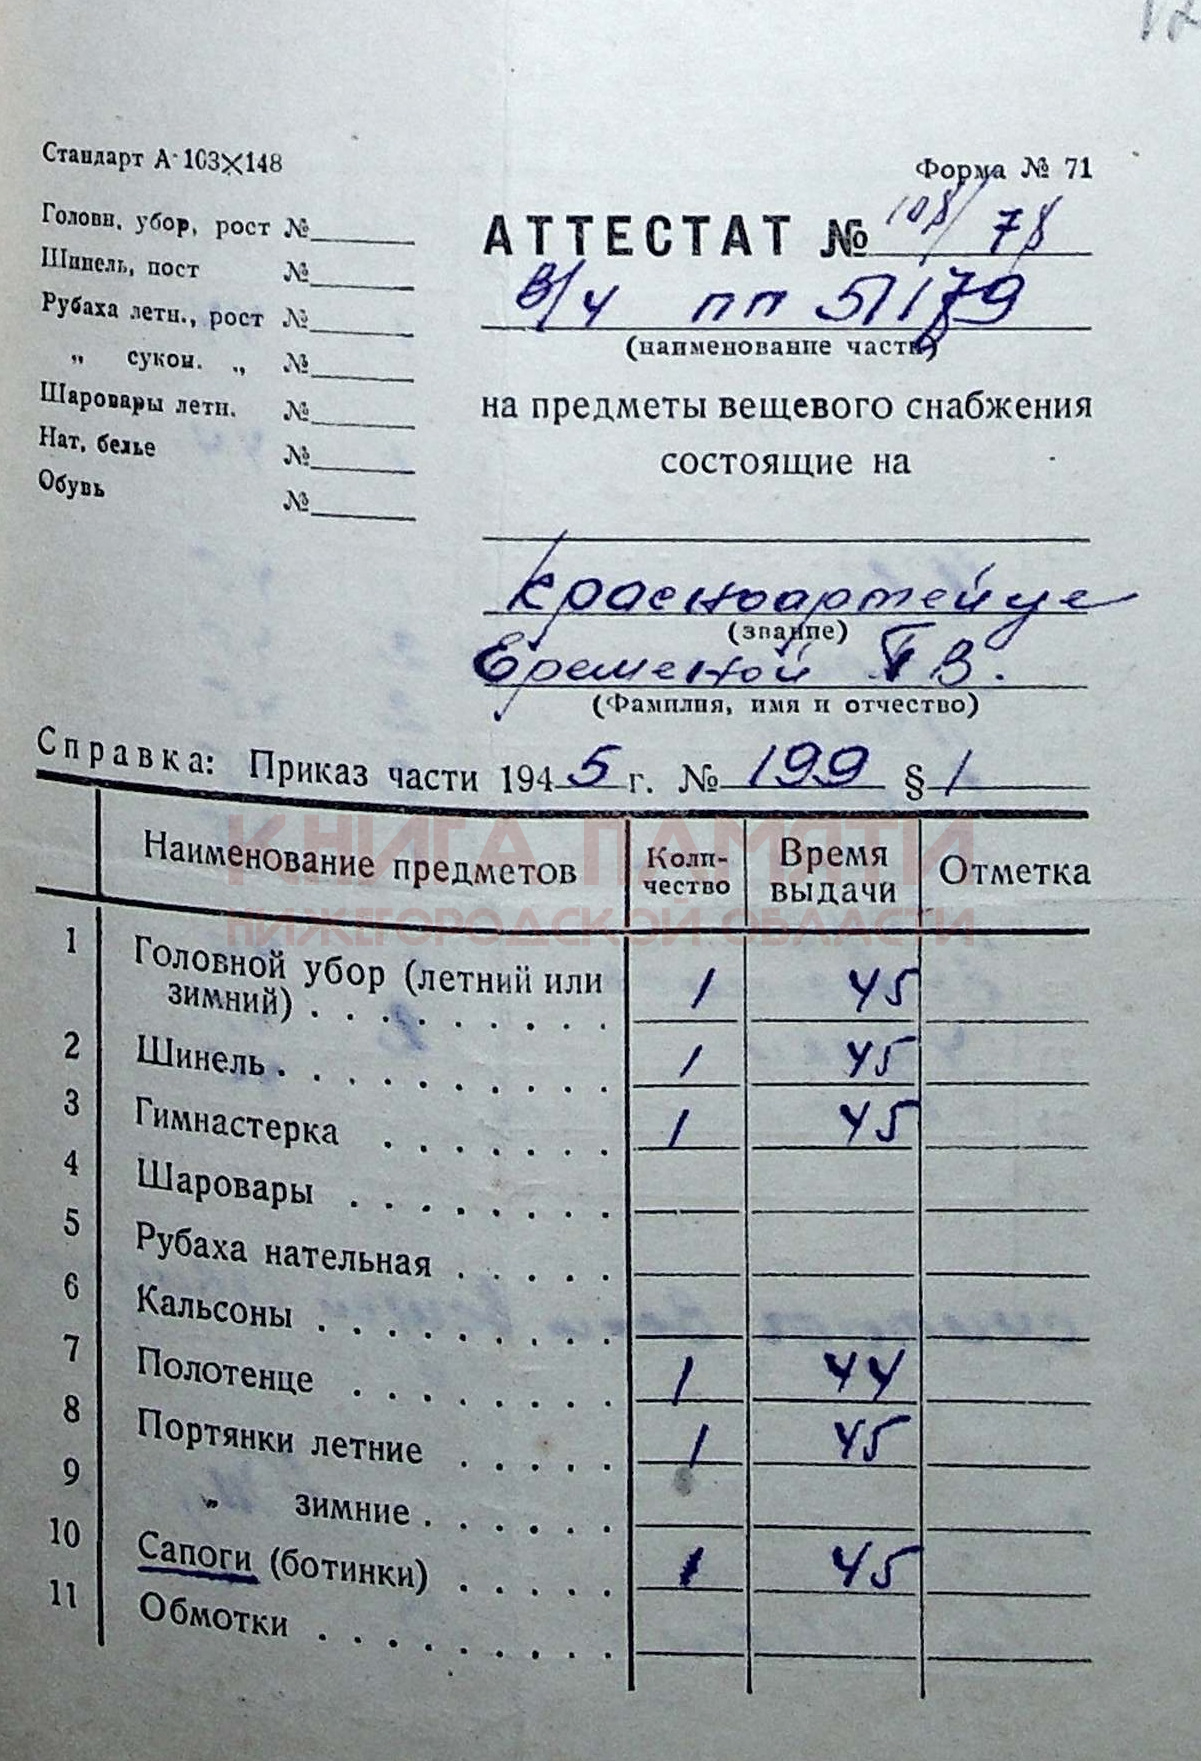 Стандарт А-103×148
Форма № 71
Головн. убор, рост №
Шинель, пост №
Рубаха летн., рост №
„ сукон. „ №
Шаровары летн. №
Нат, белье №
Обувь №
АТТЕСТАТ № 108/78
в/ч пп 51179
(наименование части)
на предметы вещевого снабжения
состоящие на
Красноармейце
(звание)
Еременой В.
(Фамилия, имя и отчество)
Справка: Приказ части 1945 г. № 199 § 1
КНИГА ПАМЯТИ
НИЖЕГОРОДСКОЙ ОБЛАСТИ
Наименование предметов Количество Время выдачи Отметка
1 Головной убор (летний или
зимний) . . . . . . . . . 1 45
2 Шинель . . . . . . . . . . 1 45
3 Гимнастерка . . . . . . . 1 45
4 Шаровары . . . . . . . .
5 Рубаха нательная . . . . .
6 Кальсоны . . . . . . . . .
7 Полотенце . . . . . . . . 1 44
8 Портянки летние . . . . . 1 45
9 „ зимние . . . . . .
10 Сапоги (ботинки) . . . . . 1 45
11 Обмотки . . . . . . . . .